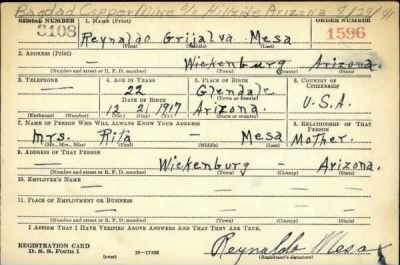 Bagdad Copper Mine c/o Hillside Arizona 8/29/41
SERIAL NUMBER 1. NAME (Print) ORDER NUMBER
3108 Reynaldo Grijalva Mesa 1596
(First) (Middle) (Last)
2. ADDRESS (Print)
— Wickenburg Arizona.
(Number and street or R. F. D. number) (Town) (County) (State)
3. TELEPHONE 4. AGE IN YEARS 5. PLACE OF BIRTH 6. COUNTRY OF CITIZENSHIP
— 22 Glendale
DATE OF BIRTH (Town or county)
12 2 1917 Arizona. U.S.A.
(Exchange) (Number) (Mo.) (Day) (Yr.) (State or country)
7. NAME OF PERSON WHO WILL ALWAYS KNOW YOUR ADDRESS 8. RELATIONSHIP OF THAT PERSON
Mrs. Rita — Mesa Mother.
(Mr., Mrs., Miss) (First) (Middle) (Last)
9. ADDRESS OF THAT PERSON
— Wickenburg — Arizona.
(Number and street or R. F. D. number) (Town) (County) (State)
10. EMPLOYER'S NAME
— — —
11. PLACE OF EMPLOYMENT OR BUSINESS
— — — —
(Number and street or R. F. D. number) (Town) (County) (State)
I AFFIRM THAT I HAVE VERIFIED ABOVE ANSWERS AND THAT THEY ARE TRUE.
REGISTRATION CARD
D. S. S. Form 1 (over) 16—17105 Reynaldo Mesa
(Registrant's signature)